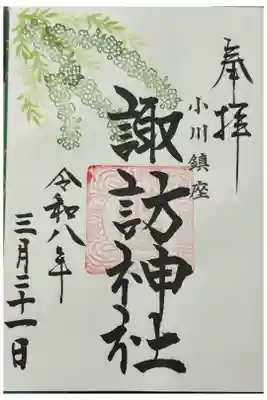 奉拝
小川鎮座
諏訪神社
令和八年
三月二十一日